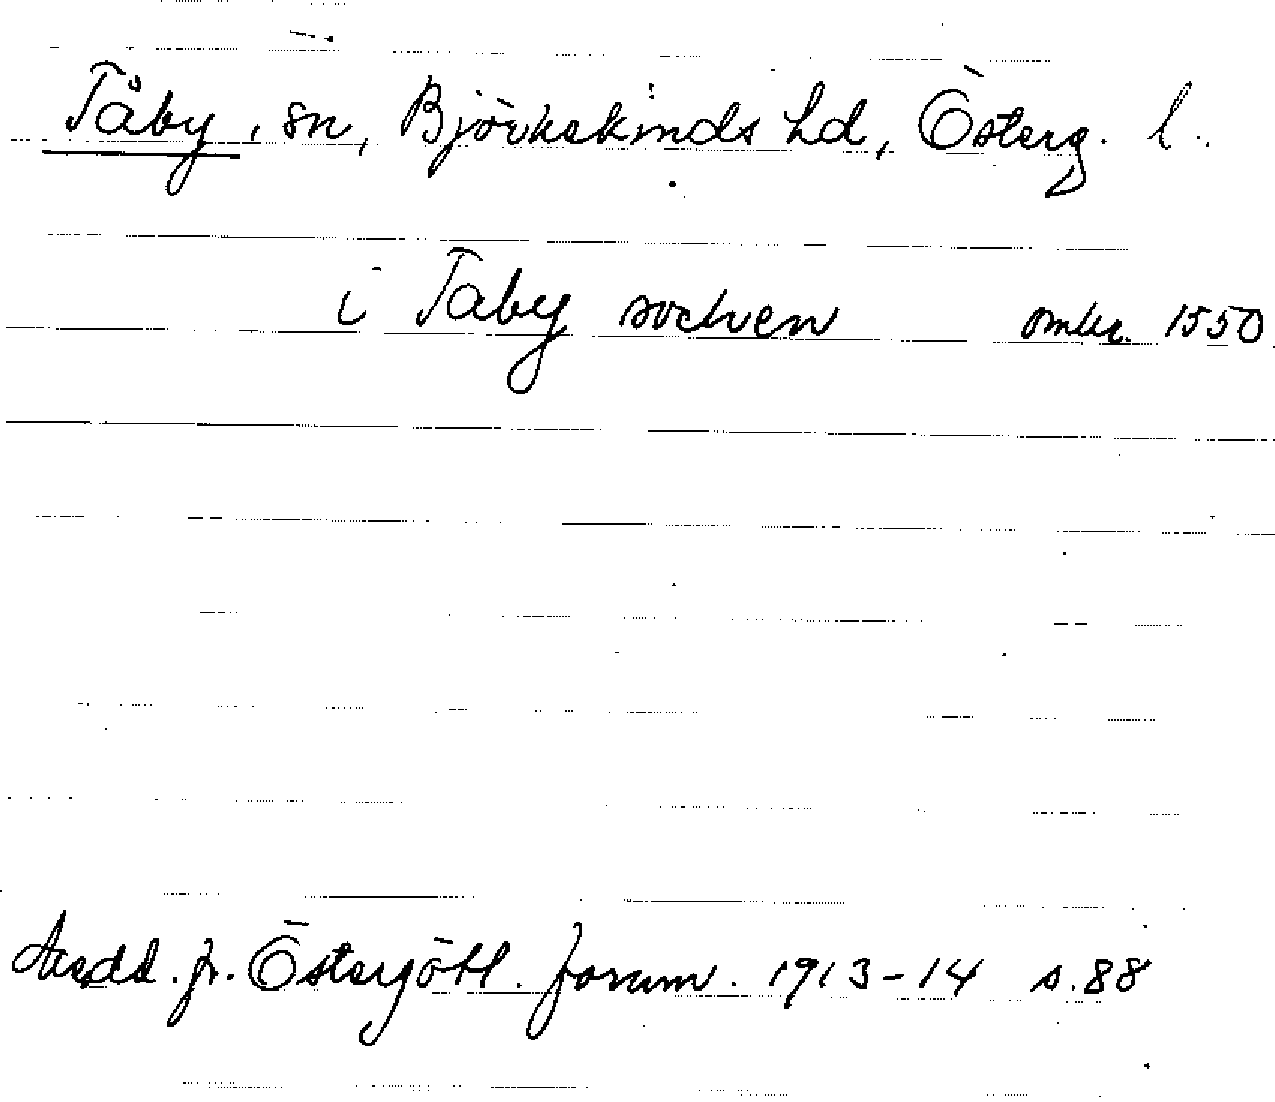 Tåby, sn, Björkekinds hd, Österg. l.
i Taby sochen omkr. 1550
Medd. fr. Östergötl. fornm. 1913-14 s. 88